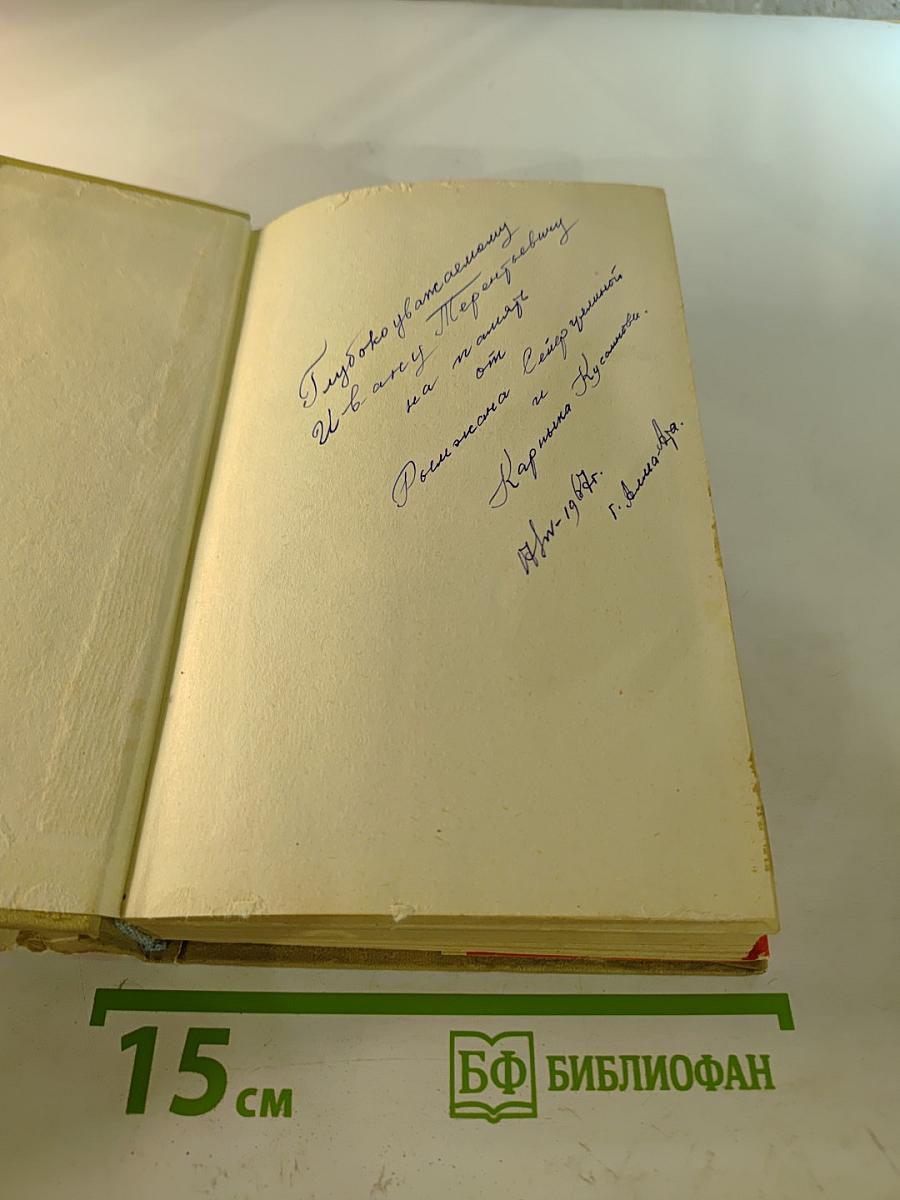 Глубокоуважаемому
Ивану Терентьевичу
на память
от
Рымжана Сейфуллиной
и
Карпыка Кусаинова.
17/IV-1967г.
г. Алма-Ата.
15 см
БФ БИБЛИОФАН